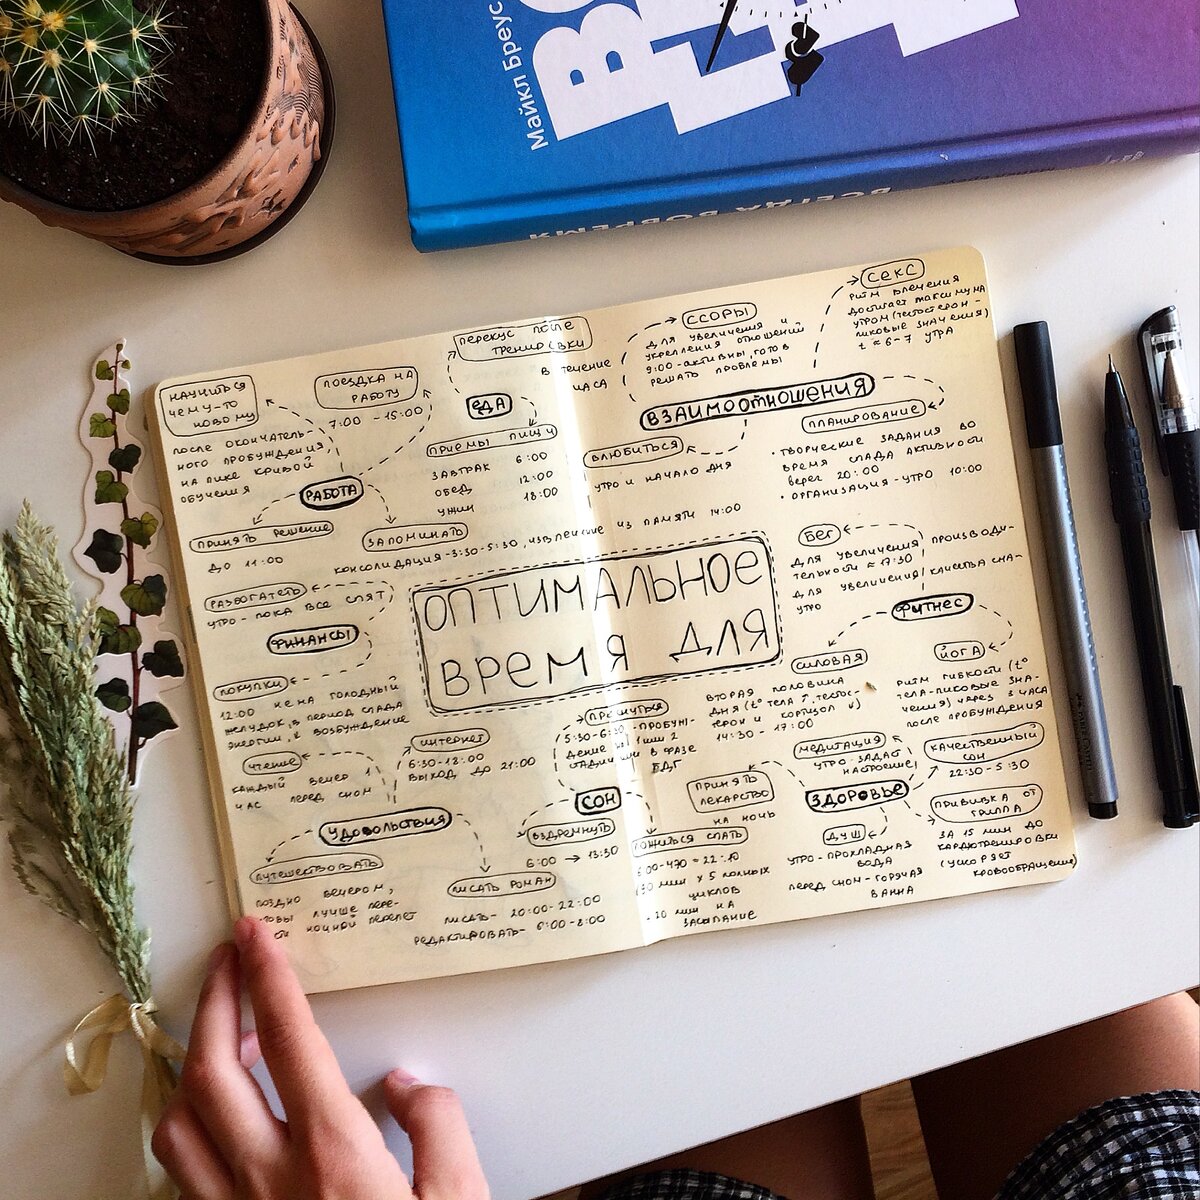 Майкл Бреус
ВСЕГДА ВОВРЕМЯ
НАУЧИТЬСЯ
ЧЕМУ-ТО
НОВОМУ
ПОСЛЕ ОКОНЧАТЕЛЬ-
НОГО ПРОБУЖДЕНИЯ,
НА ПИКЕ КРИВОЙ
ОБУЧЕНИЯ
ПОЕЗДКА НА
РАБОТУ
7:00 - 15:00
РАБОТА
ПРИНЯТЬ РЕШЕНИЕ
ДО 11:00
ЗАПОМИНАТЬ
КОНСОЛИДАЦИЯ-3:30-5:30, ИЗВЛЕЧЕНИЕ ИЗ ПАМЯТИ 14:00
ПЕРЕКУС ПОСЛЕ
ТРЕНИРОВКИ
В ТЕЧЕНИЕ
ЧАСА
ЕДА
ПРИЕМЫ ПИЩИ
ЗАВТРАК 6:00
ОБЕД 12:00
УЖИН 18:00
ССОРЫ
ДЛЯ УВЕЛИЧЕНИЯ И
УКРЕПЛЕНИЯ ОТНОШЕНИЙ
9:00-АКТИВНЫ, ГОТОВ
РЕШАТЬ ПРОБЛЕМЫ
СЕКС
РИТМ ВЛЕЧЕНИЯ
ДОСТИГАЕТ МАКСИМУМА
УТРОМ (ТЕСТОСТЕРОН-
ПИКОВЫЕ ЗНАЧЕНИЯ)
t ≈ 6-7 УТРА
ВЗАИМООТНОШЕНИЯ
ВЛЮБИТЬСЯ
УТРО И НАЧАЛО ДНЯ
ПЛАНИРОВАНИЕ
• ТВОРЧЕСКИЕ ЗАДАНИЯ ВО
ВРЕМЯ СПАДА АКТИВНОСТИ
20:00
• ОРГАНИЗАЦИЯ-УТРО 10:00
ОПТИМАЛЬНОЕ
ВРЕМЯ ДЛЯ
РАЗБОГАТЕТЬ
УТРО - ПОКА ВСЕ СПЯТ
ФИНАНСЫ
ПОКУПКИ
12:00 НЕ НА ГОЛОДНЫЙ
ЖЕЛУДОК, В ПЕРИОД СПАДА
ЭНЕРГИИ, ВОЗБУЖДЕНИЕ
БЕГ
ДЛЯ УВЕЛИЧЕНИЯ ПРОИЗВОДИ-
ТЕЛЬНОСТИ ≈ 17:30
ДЛЯ УВЕЛИЧЕНИЯ КАЧЕСТВА СНА-
УТРО
ФИТНЕС
СИЛОВАЯ
ВТОРАЯ ПОЛОВИНА
ДНЯ (t° ТЕЛА ↑, ТЕСТОС-
ТЕРОН И КОРТИЗОЛ ↓)
14:30 - 17:00
ЙОГА
РИТМ ГИБКОСТИ (t°
ТЕЛА-ПИКОВЫЕ ЗНА-
ЧЕНИЯ) ЧЕРЕЗ 3 ЧАСА
ПОСЛЕ ПРОБУЖДЕНИЯ
ЧТЕНИЕ
КАЖДЫЙ ВЕЧЕР 1
ЧАС ПЕРЕД СНОМ
ИНТЕРНЕТ
6:30-18:00
ВЫХОД ДО 21:00
УДОВОЛЬСТВИЯ
ПУТЕШЕСТВОВАТЬ
ПОЗДНО ВЕЧЕРОМ,
ЛУЧШЕ ПЕРЕ-
НОЧНОЙ ПЕРЕЛЕТ
ПИСАТЬ РОМАН
ПИСАТЬ- 20:00-22:00
РЕДАКТИРОВАТЬ- 6:00-8:00
ПРОСНУТЬСЯ
5:30-6:30-ПРОБУЖ-
ДЕНИЕ ИЛИ 2
СТАДИИ В ФАЗЕ
БДГ
СОН
ВЗДРЕМНУТЬ
6:00 → 13:30
ЛОЖИТЬСЯ СПАТЬ
МИН X 5 ПОЛНЫХ
ЦИКЛОВ
20 МИН НА
ЗАСЫПАНИЕ
ПРИНЯТЬ
ЛЕКАРСТВО
НА НОЧЬ
МЕДИТАЦИЯ
УТРО - ЗАДАЕТ
НАСТРОЕНИЕ
ЗДОРОВЬЕ
КАЧЕСТВЕННЫЙ
СОН
22:30-5:30
ДУШ
УТРО-ПРОХЛАДНАЯ
ВОДА
ПЕРЕД СНОМ-ГОРЯЧАЯ
ВАННА
ПРИВИВКА ОТ
ГРИППА
ЗА 15 МИН ДО
КАРДИОТРЕНИРОВКИ
(УСКОРЯЕТ
КРОВООБРАЩЕНИЕ)